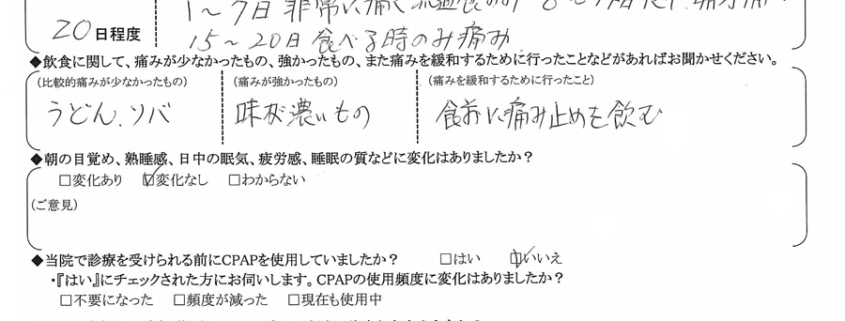 1～7日 非常に痛く
20日程度
15～20日 食べる時のみ痛み
◆飲食に関して、痛みが少なかったもの、強かったもの、また痛みを緩和するために行ったことなどがあればお聞かせください。
（比較的痛みが少なかったもの） （痛みが強かったもの） （痛みを緩和するために行ったこと）
うどん、ソバ 味が濃いもの 食前に痛み止めを飲む
◆朝の目覚め、熟睡感、日中の眠気、疲労感、睡眠の質などに変化はありましたか？
□変化あり ☑変化なし □わからない
（ご意見）
◆当院で診療を受けられる前にCPAPを使用していましたか？ □はい ☑いいえ
・『はい』にチェックされた方にお伺いします。CPAPの使用頻度に変化はありましたか？
□不要になった □頻度が減った □現在も使用中